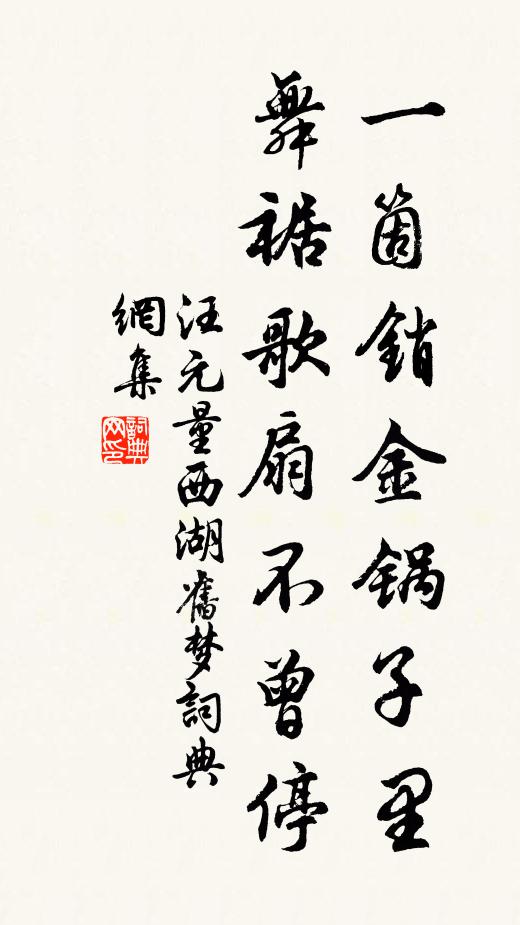 一箇銷金锅子里
舞裾歌扇不曾停
汪元量西湖舊梦詞典
網集
詞典网印